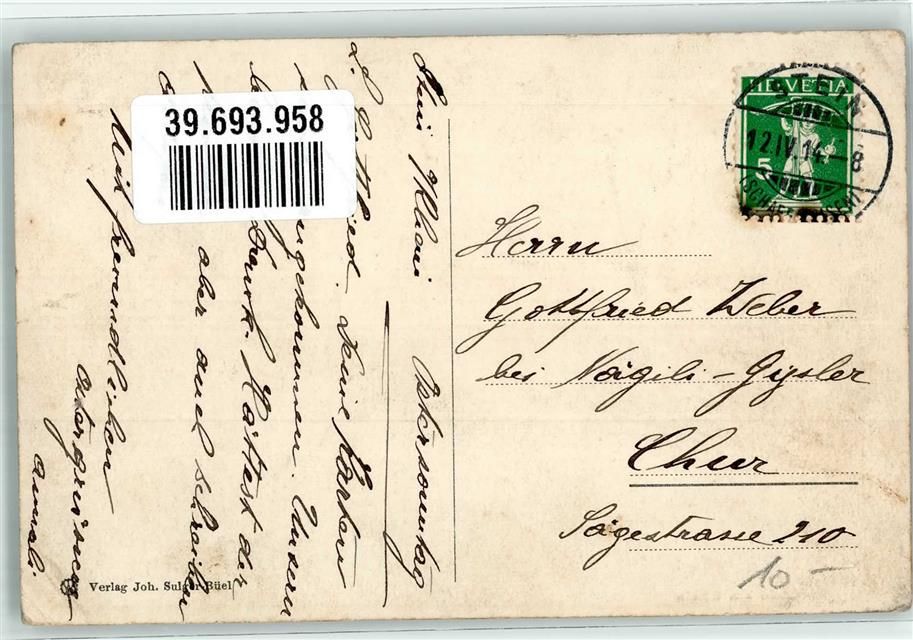 39.693.958
HELVETIA
5
STEIN
12.IV.14.-8
Herrn
Gottfried Weber
bei Nägili-Gysler
Chur
Sägestrasse 210
10.-
Ostersonntag
L. Gottfried. Deine Karten
angekommen. Unsern
Dank. Hättest
aber auch schreiben
Mit freundlichen
Ostergrüssen
Verlag Joh. Sulger Büel